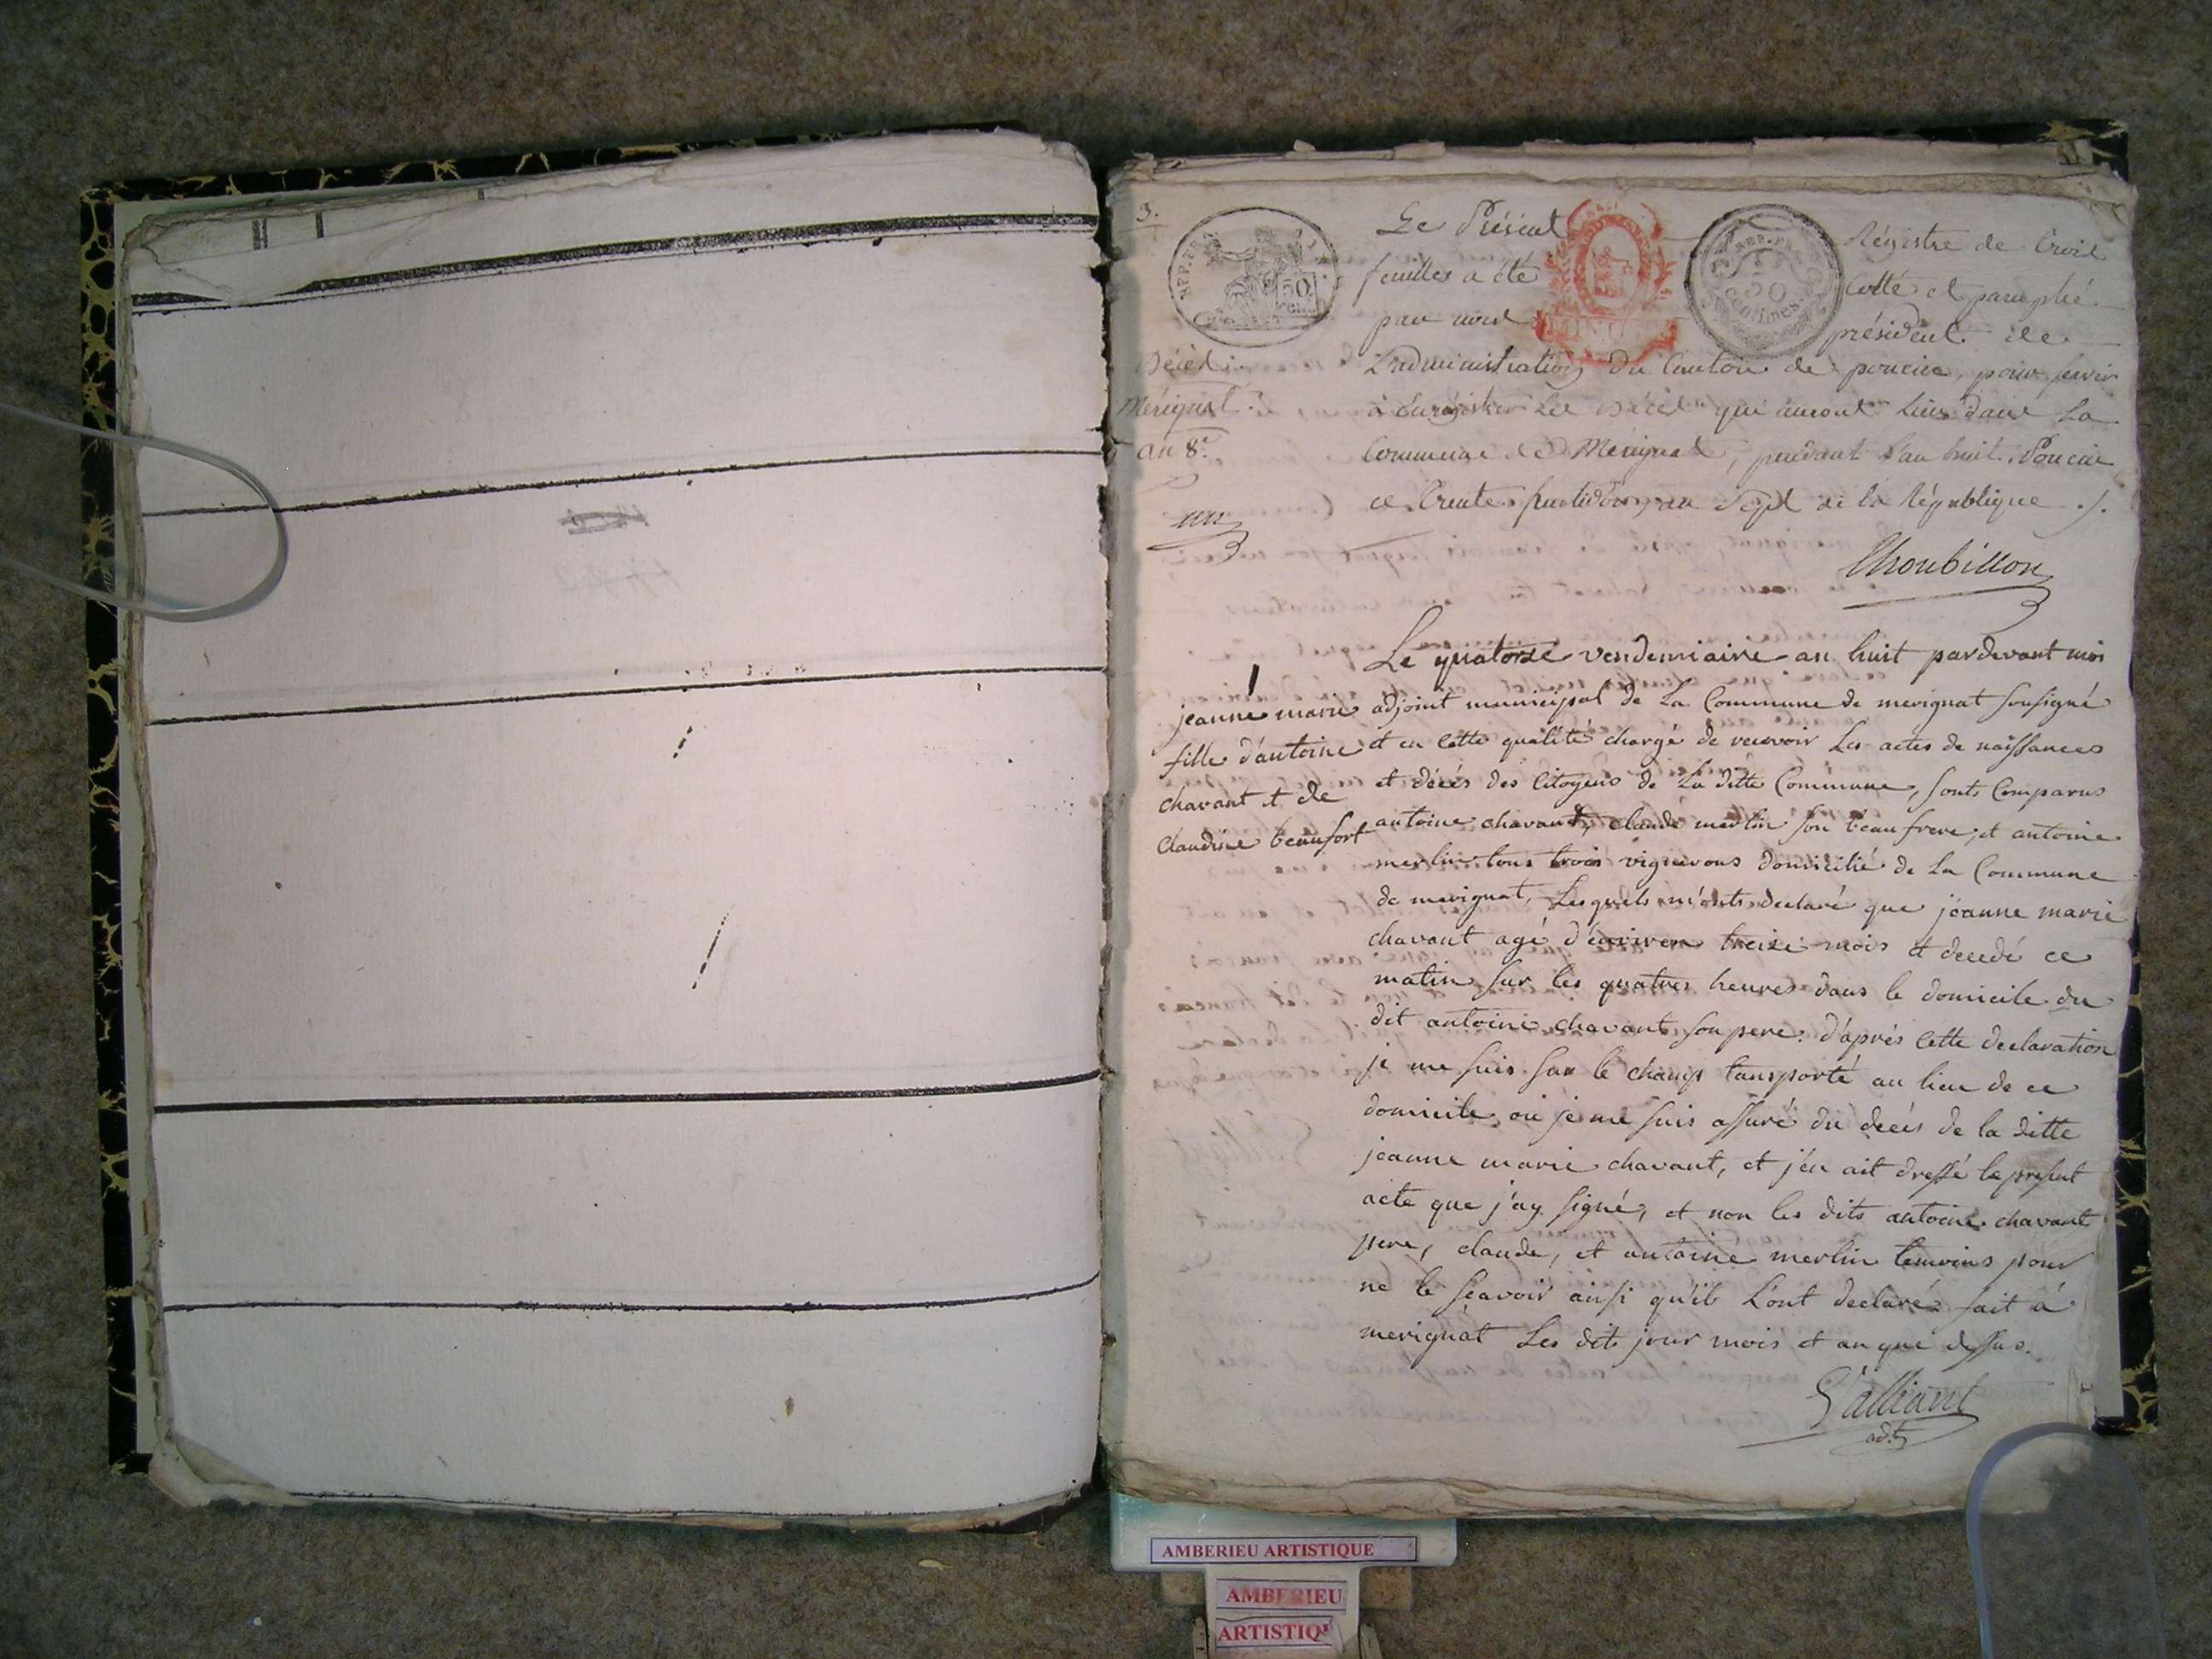 3.
REP. FRA.
50
CEN.
REP. FRA.
50
centimes
Le Présent Régistre de trois
feuilles a été Cotté et paraphé
par nous président de
Décès. L'administration du Canton de poncin, pour servir
Mérignat. à Enrégistrer Les Décès qui auront Lieu dans La
an 8e. Commune de Mérignat, pendant L'an huit. Poncin
ce trente fructidor, an Sept de la République ./.
un
Choubillon
1
Le quatorze vendemiaire an huit pardevant moi
jeanne marie
fille d'antoine
chavant et de
Claudine beaufort
adjoint municipal de La Commune de merignat sousigné
et en Cette qualité chargé de recevoir Les actes de naissances
et décés des Citoyens de La ditte Commune, sonts Comparus
antoine chavant, claude merlin son beaufrere, et antoine
merlin tous trois vignerons domicilié de La Commune
de merignat, Lesquels m'onts declaré que jeanne marie
chavant agé d'environ treize mois et decedé ce
matin sur les quatres heures dans le domicile du
dit antoine chavant son pere: d'aprés Cette declaration
je me suis sur le champ transporté au lieu de ce
domicile, ou je me suis assuré du decés de la ditte
jeanne marie chavant, et j'en ait dressé le present
acte que j'ay signé, et non les dits antoine chavant
pere, claude, et antoine merlin temoins pour
ne le sçavoir ainsi qu'ils L'ont declaré fait á
merignat Les dit jour mois et an que dessus.
Galliant
adt
AMBERIEU ARTISTIQUE
AMBERIEU
ARTISTIQ